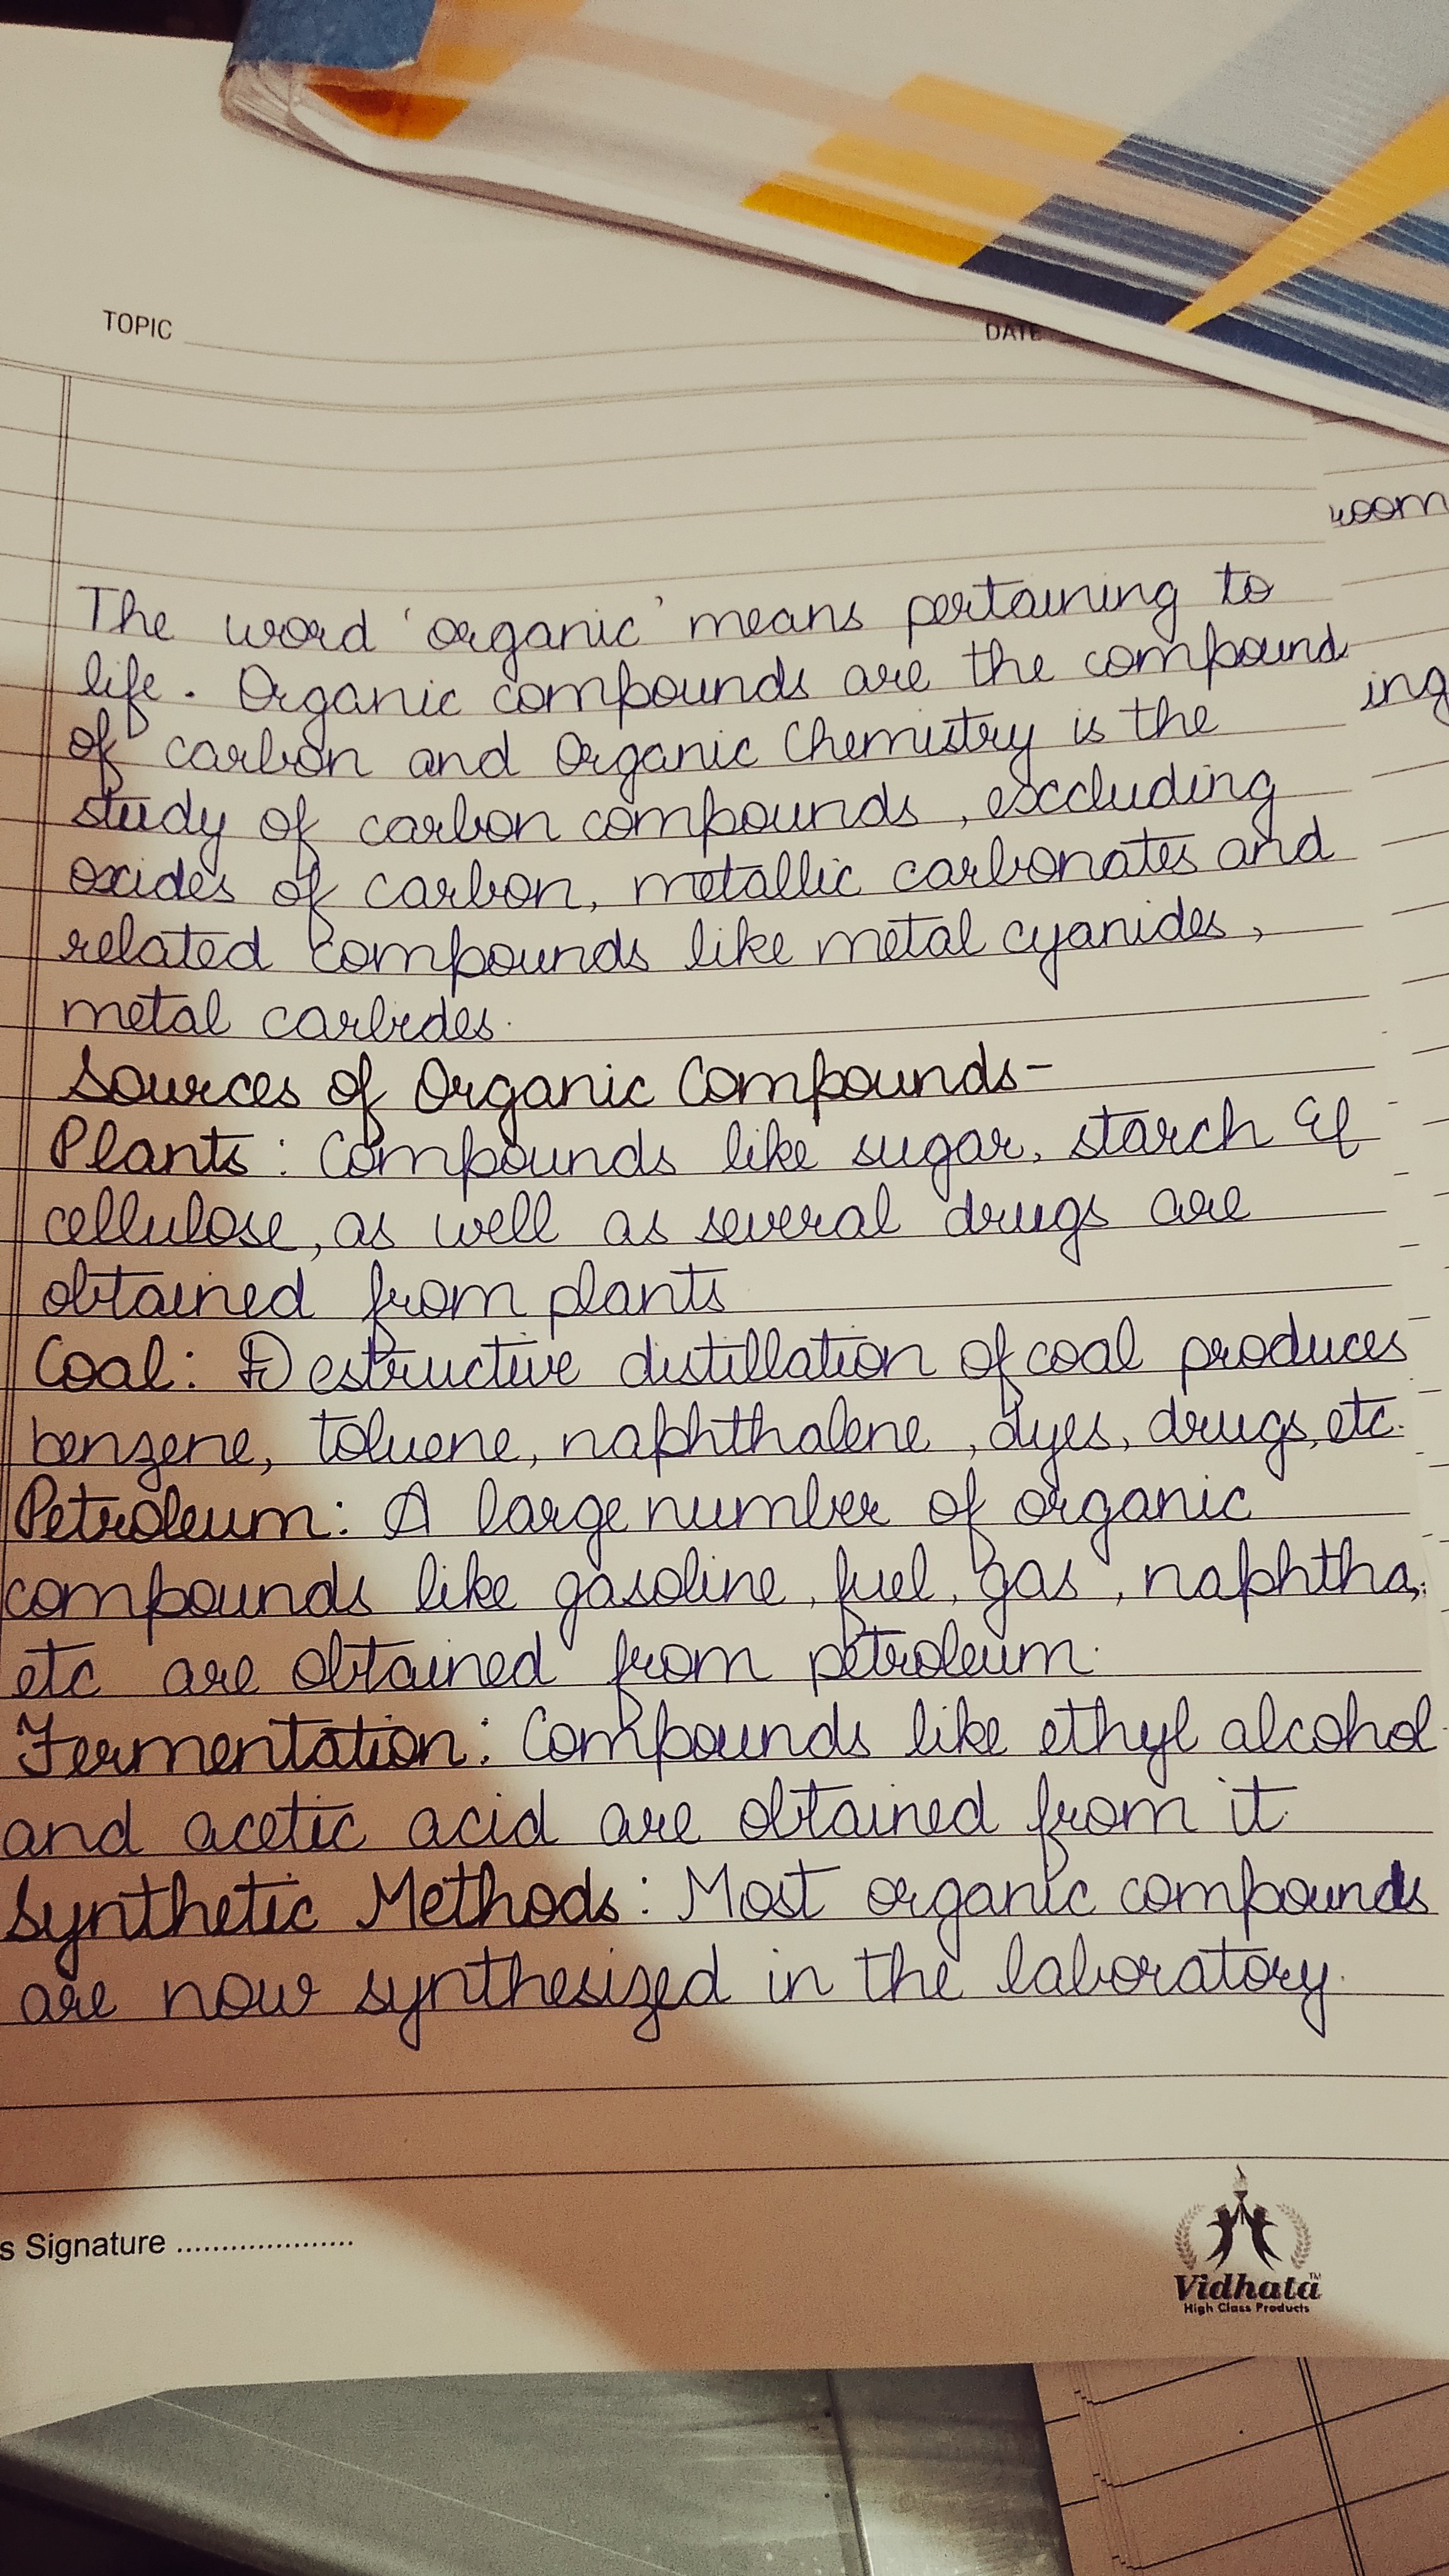 TOPIC DATE
room
The word 'organic' means pertaining to
life. Organic compounds are the compound
ing
of carbon and Organic Chemistry is the
study of carbon compounds, excluding
oxides of carbon, metallic carbonates and
related compounds like metal cyanides,
metal carbides.
Sources of Organic Compounds-
Plants: Compounds like sugar, starch &
cellulose, as well as several drugs are
obtained from plants
Coal: Destructive distillation of coal produces
benzene, toluene, naphthalene, dyes, drugs, etc.
Petroleum: A large number of organic
compounds like gasoline, fuel, gas, naphtha,
etc are obtained from petroleum.
Fermentation: Compounds like ethyl alcohol
and acetic acid are obtained from it
Synthetic Methods: Most organic compounds
are now synthesized in the laboratory.
s Signature ....................
Vidhata TM
High Class Products